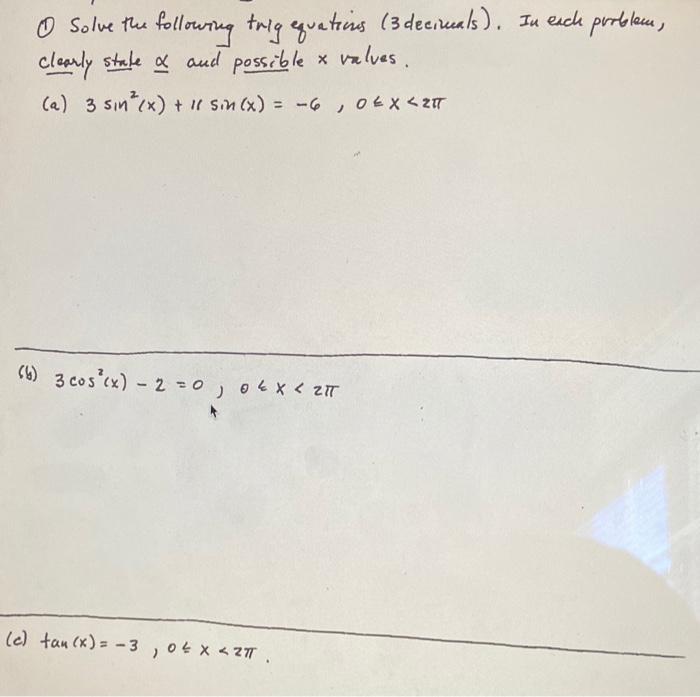 ① Solve the following trig equations (3 decimals). In each problem,
clearly state α and possible x values.
(a) 3 sin²(x) + 11 sin(x) = -6 , 0 ≤ x < 2π
(b) 3 cos²(x) - 2 = 0 , 0 ≤ x < 2π
(c) tan(x) = -3 , 0 ≤ x < 2π .